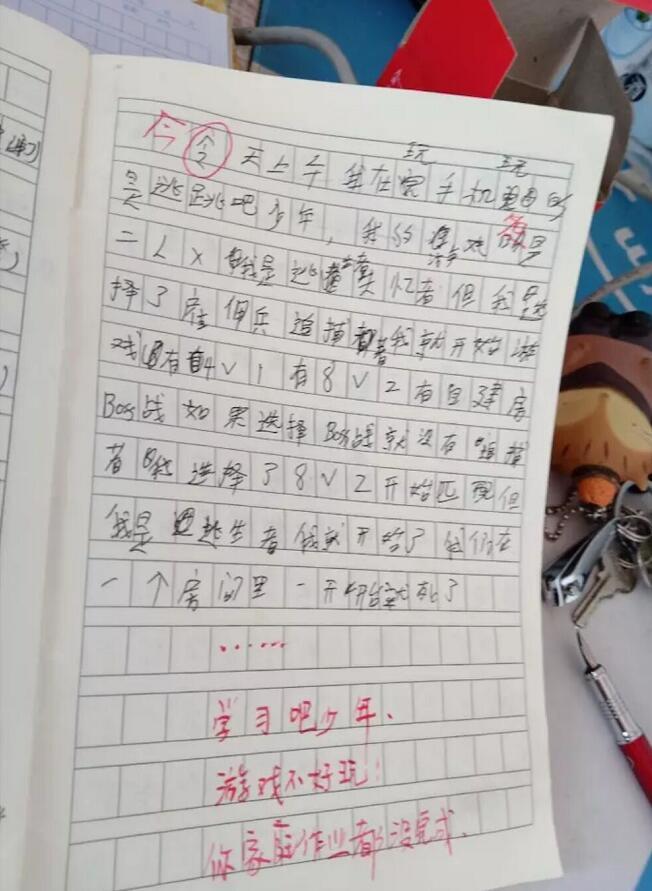 今
天上午我在家玩手机玩的
是逃跑吧少年,我的游戏
二L X 我是逃者但我选
择了雇佣兵追捕者我就开始游
戏有4V1有8V2有自建房
Boss战如果选择Boss战就没有追捕
者我选择了8V2开始匹配但
我是逃生者我就开始了我们在
一个房间里一开始就死了
……
学习吧少年、
游戏不好玩!
你家庭作业都没完成.